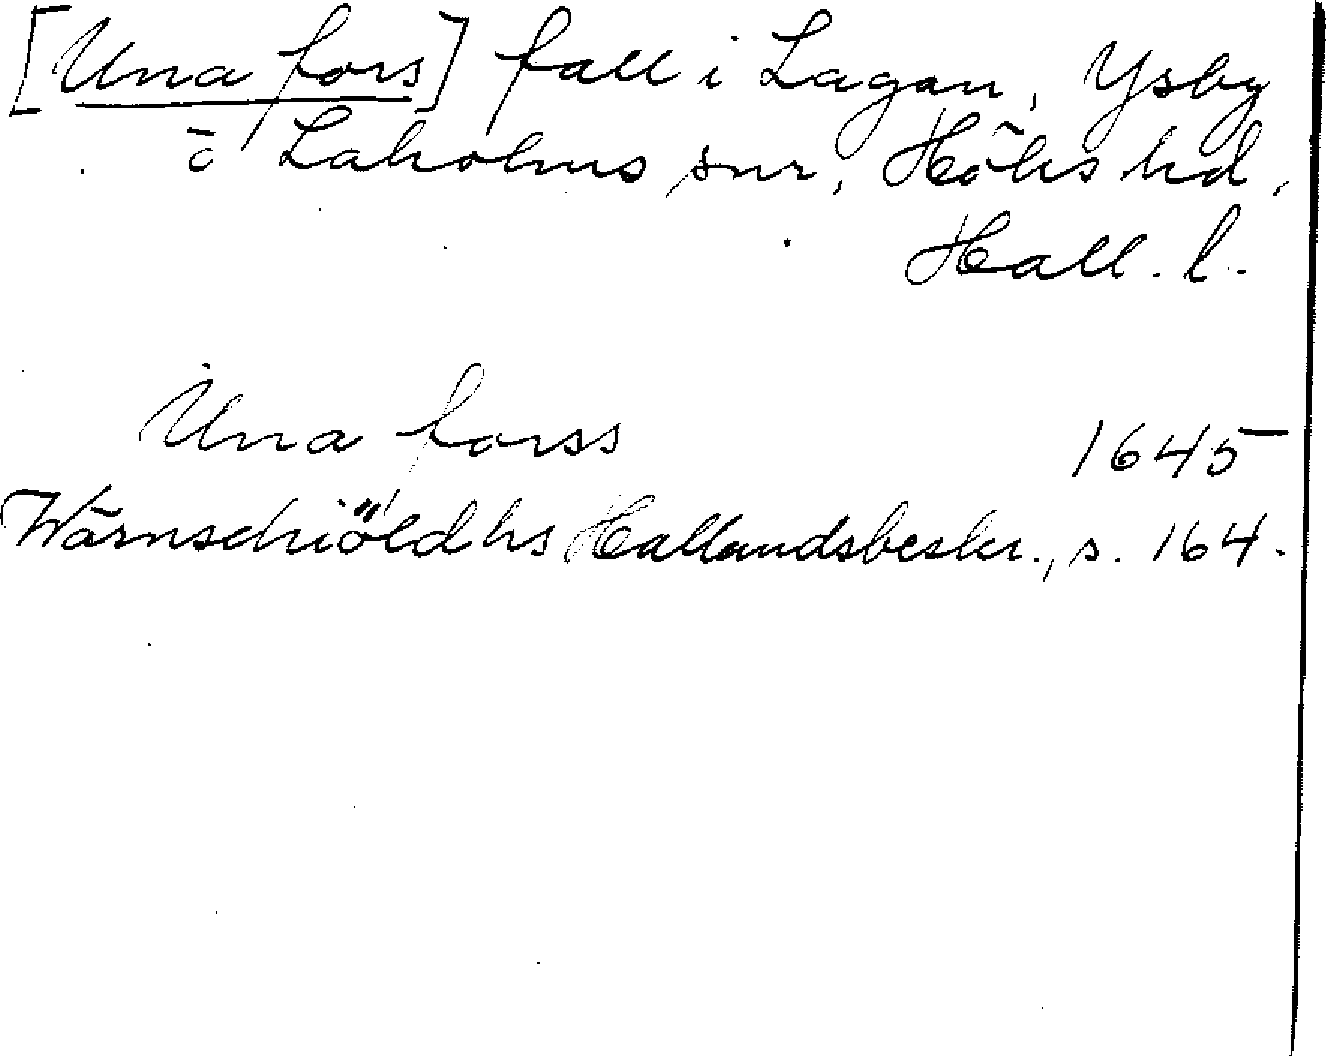 [Una fors] fall i Lagan, Ysby
o Laholms snr, Höks hd,
Hall. l.
Una forss 1645
Wärnschiöldhs Hallandsbeskr., s. 164.